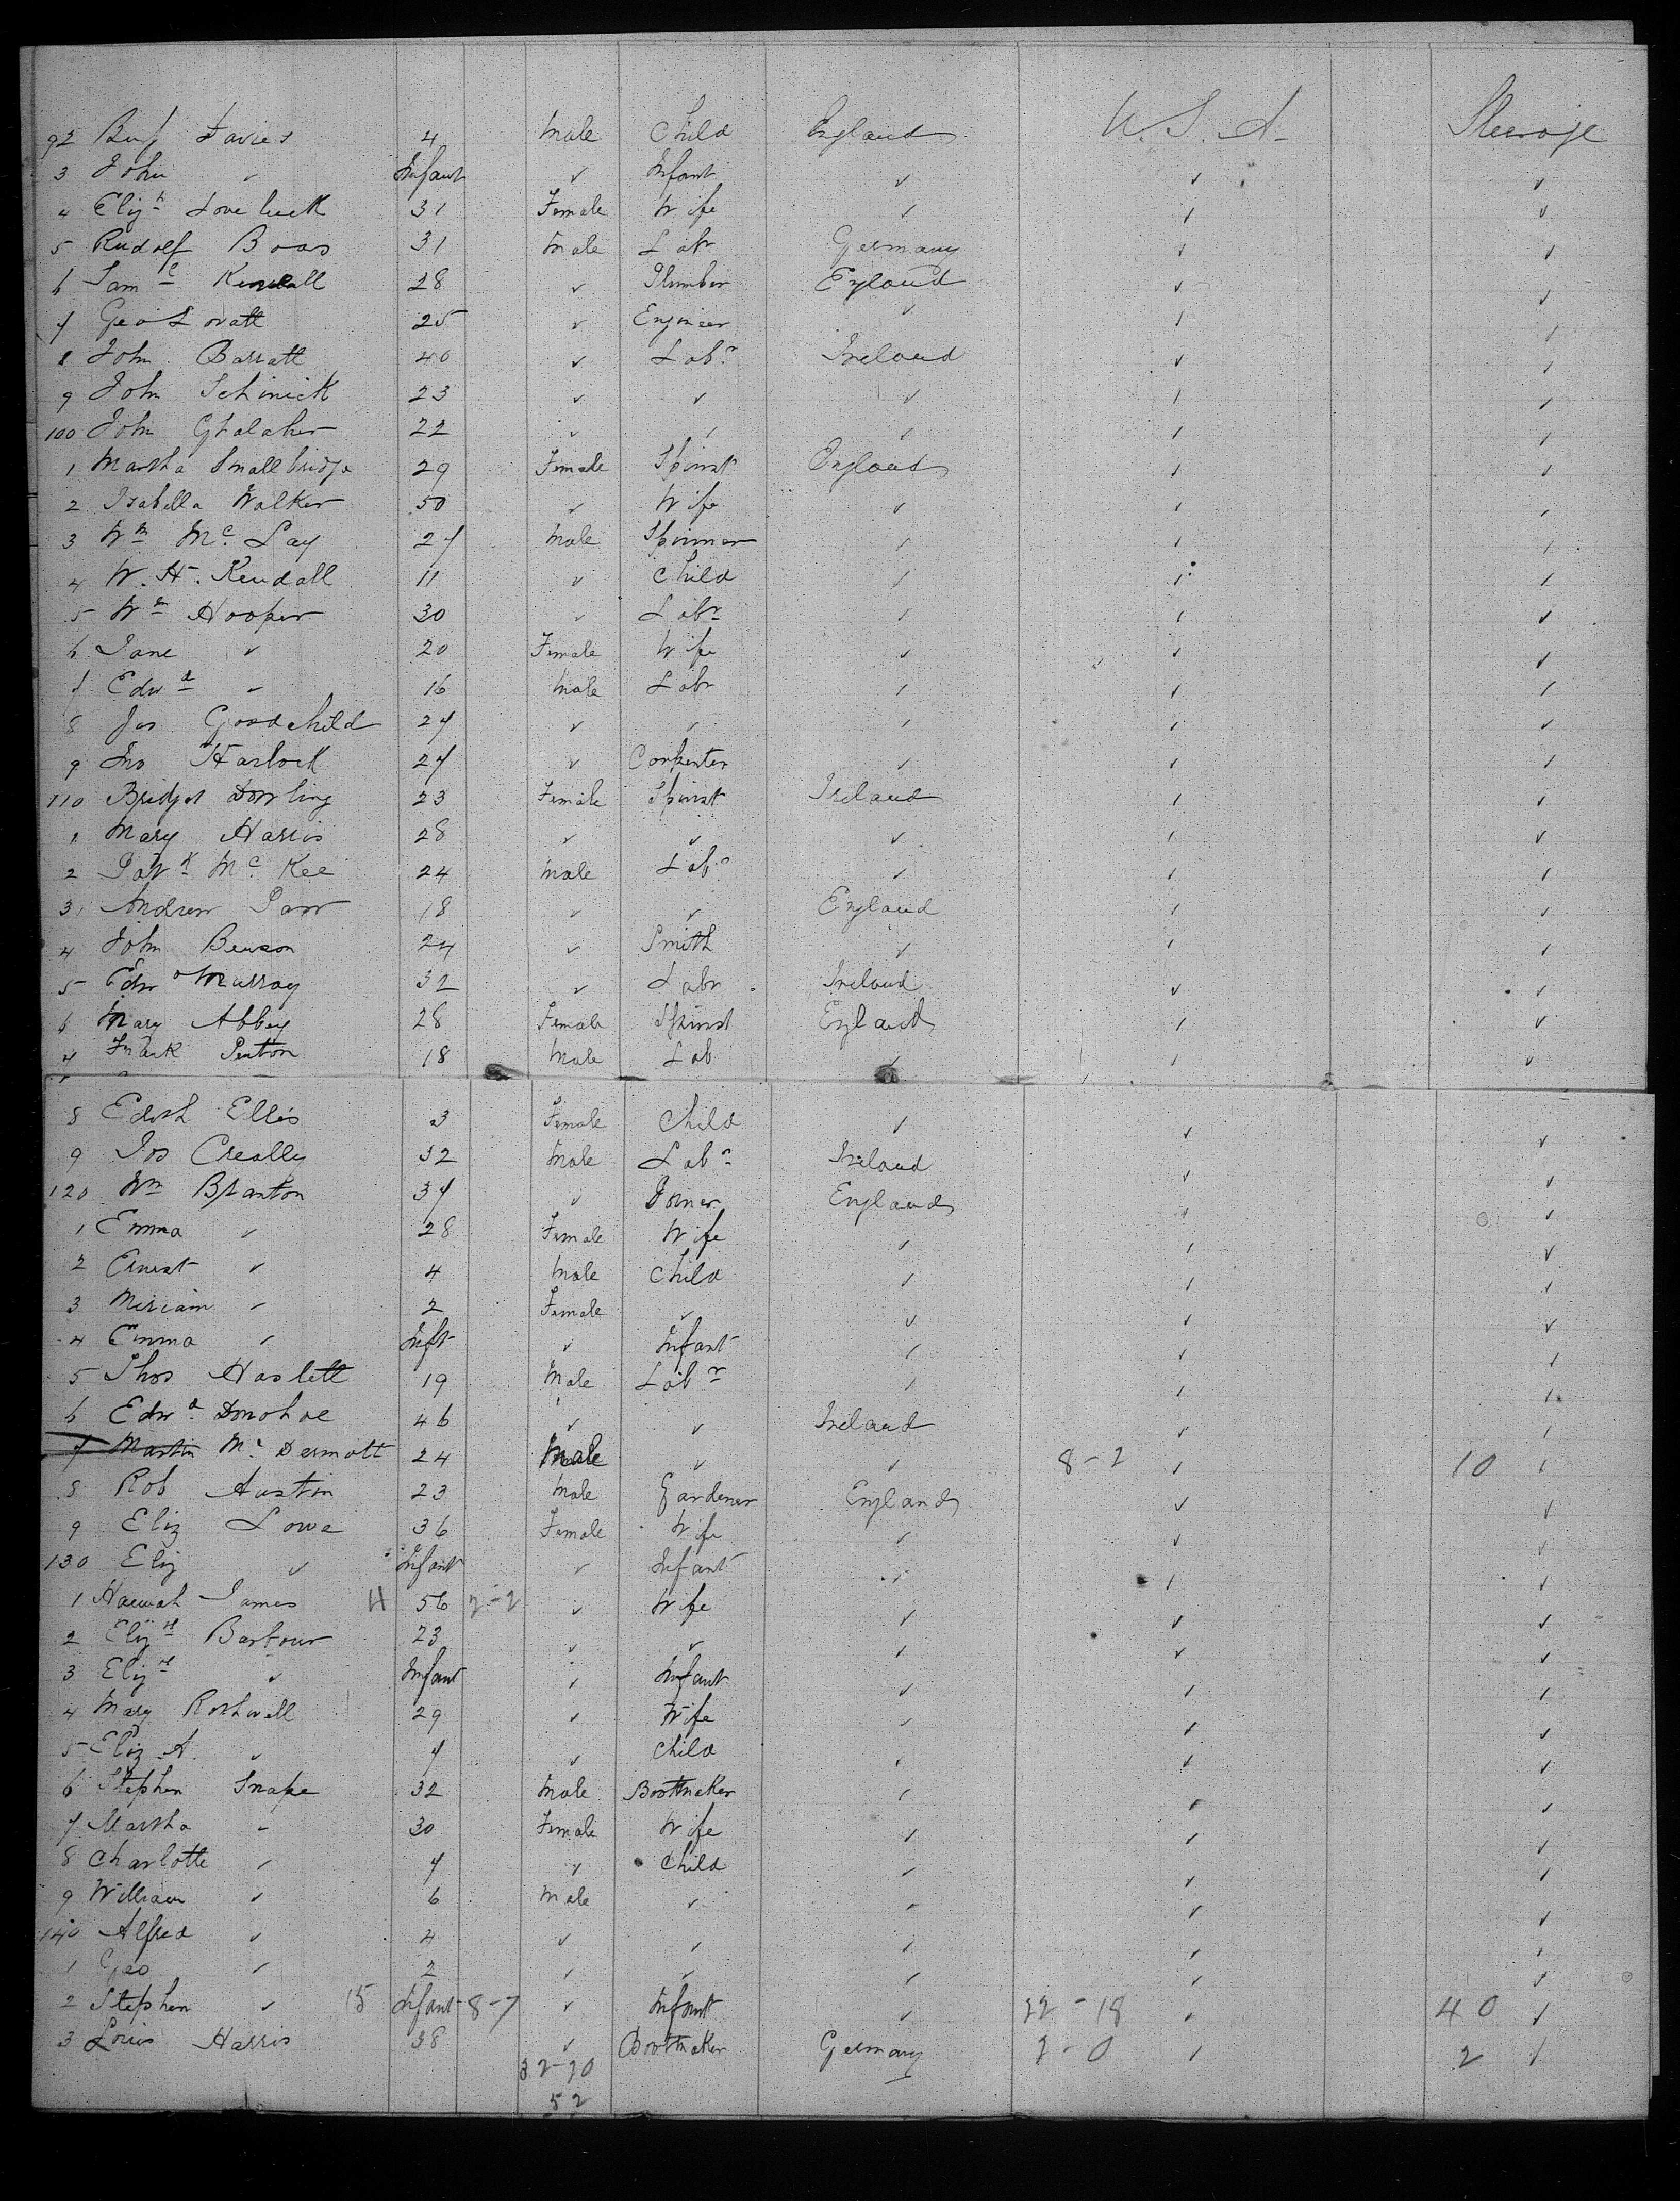 92 Benj Davies 4 Male Child England U.S.A. Steerage
3 John ✓ Infant ✓ Infant ✓ ✓ ✓
4 Elizh Loveluck 31 Female Wife ✓ ✓ ✓
5 Rudolf Boas 31 Male Labr Germany ✓ ✓
6 Saml Kendall 28 ✓ Plumber England ✓ ✓
7 Geo Lovatt 25 ✓ Engineer ✓ ✓ ✓
8 John Barratt 40 ✓ Labr Ireland ✓ ✓
9 John Schinick 23 ✓ ✓ ✓ ✓ ✓
100 John 22 ✓ ✓ ✓ ✓ ✓
1 Martha Smallbridge 29 Female Spinst England ✓ ✓
2 Isabella Walker 50 ✓ Wife ✓ ✓ ✓
3 Wm Mc Lay 27 Male Spinner ✓ ✓ ✓
4 W. H. Kendall 11 ✓ Child ✓ ✓ ✓
5 Wm Hooper 30 ✓ Labr ✓ ✓ ✓
6 Jane ✓ 20 Female Wife ✓ ✓ ✓
7 Edwd ✓ 16 Male Labr ✓ ✓ ✓
8 Jas Goodchild 27 ✓ ✓ ✓ ✓ ✓
9 Jno Harlock 27 ✓ Carpenter ✓ ✓ ✓
110 Bridget Dowling 23 Female Spinst Ireland ✓ ✓
1 Mary Harris 28 ✓ ✓ ✓ ✓ ✓
2 Patk Mc Kee 24 Male Labr ✓ ✓ ✓
3 Andrew Parr 18 ✓ ✓ England ✓ ✓
4 John Benson 24 ✓ Smith ✓ ✓ ✓
5 Edwd Murray 32 ✓ Labr Ireland ✓ ✓
6 Mary Abbey 28 Female Spinst England ✓ ✓
7 Frank Penton 18 Male Lab ✓ ✓ ✓
8 Edith Ellis 3 Female Child ✓ ✓ ✓
9 Jos Creally 32 Male Labr Ireland ✓ ✓
120 Wm Blanton 37 ✓ Joiner England ✓ ✓
1 Emma ✓ 28 Female Wife ✓ ✓ ✓
2 Ernest ✓ 4 Male Child ✓ ✓ ✓
3 Miriam ✓ 2 Female ✓ ✓ ✓ ✓
4 Emma ✓ Inft ✓ Infant ✓ ✓ ✓
5 Thos Haslett 19 Male Labr ✓ ✓ ✓
6 Edwd Donohoe 46 ✓ ✓ Ireland ✓ ✓
7 Martin Mc Dermott 24 Male ✓ ✓ 8-2 ✓ 10 ✓
8 Rob Austin 23 Male Gardener England ✓ ✓
9 Eliz Lowe 36 Female Wife ✓ ✓ ✓
130 Eliz ✓ Infant ✓ Infant ✓ ✓ ✓
1 Hannah James H 56 2-2 ✓ Wife ✓ ✓ ✓
2 Elizth Barbour 23 ✓ ✓ ✓ ✓ ✓
3 Elizth ✓ Infant ✓ Infant ✓ ✓ ✓
4 Mary Rothwell 29 ✓ Wife ✓ ✓ ✓
5 Eliz A. ✓ 7 ✓ Child ✓ ✓ ✓
6 Stephen Snape 32 Male Bootmaker ✓ ✓ ✓
7 Martha ✓ 30 Female Wife ✓ ✓ ✓
8 Charlotte ✓ 7 ✓ Child ✓ ✓ ✓
9 William ✓ 6 Male ✓ ✓ ✓ ✓
140 Alfred ✓ 4 ✓ ✓ ✓ ✓ ✓
1 Geo ✓ 2 ✓ ✓ ✓ ✓ ✓
2 Stephen ✓ 15 Infant 8-7 ✓ Infant ✓ 22-18 ✓ 40 ✓
3 Louis Harris 38 ✓ Bootmaker Germany 2-0 ✓ 2 ✓
32-20
52